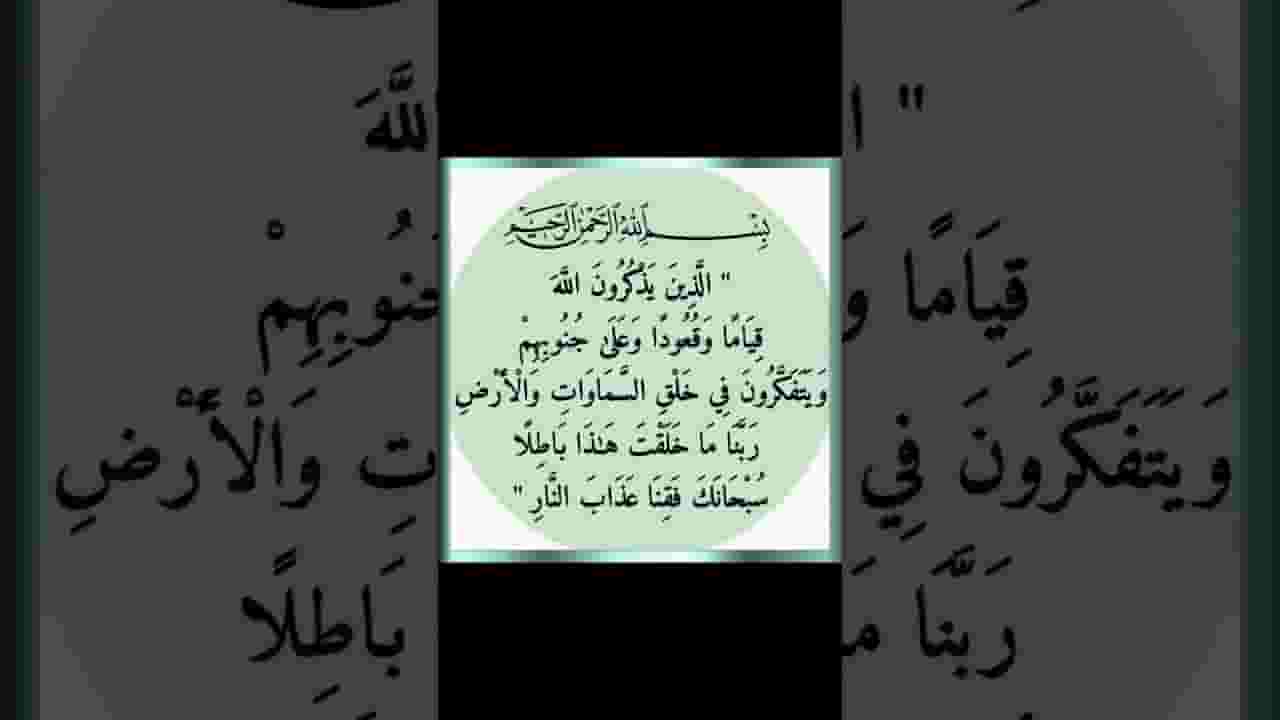 بِسْمِ اللَّهِ الرَّحْمَٰنِ الرَّحِيمِ
" الَّذِينَ يَذْكُرُونَ اللَّهَ
قِيَامًا وَقُعُودًا وَعَلَىٰ جُنُوبِهِمْ
وَيَتَفَكَّرُونَ فِي خَلْقِ السَّمَاوَاتِ وَالْأَرْضِ
رَبَّنَا مَا خَلَقْتَ هَٰذَا بَاطِلًا
سُبْحَانَكَ فَقِنَا عَذَابَ النَّارِ "